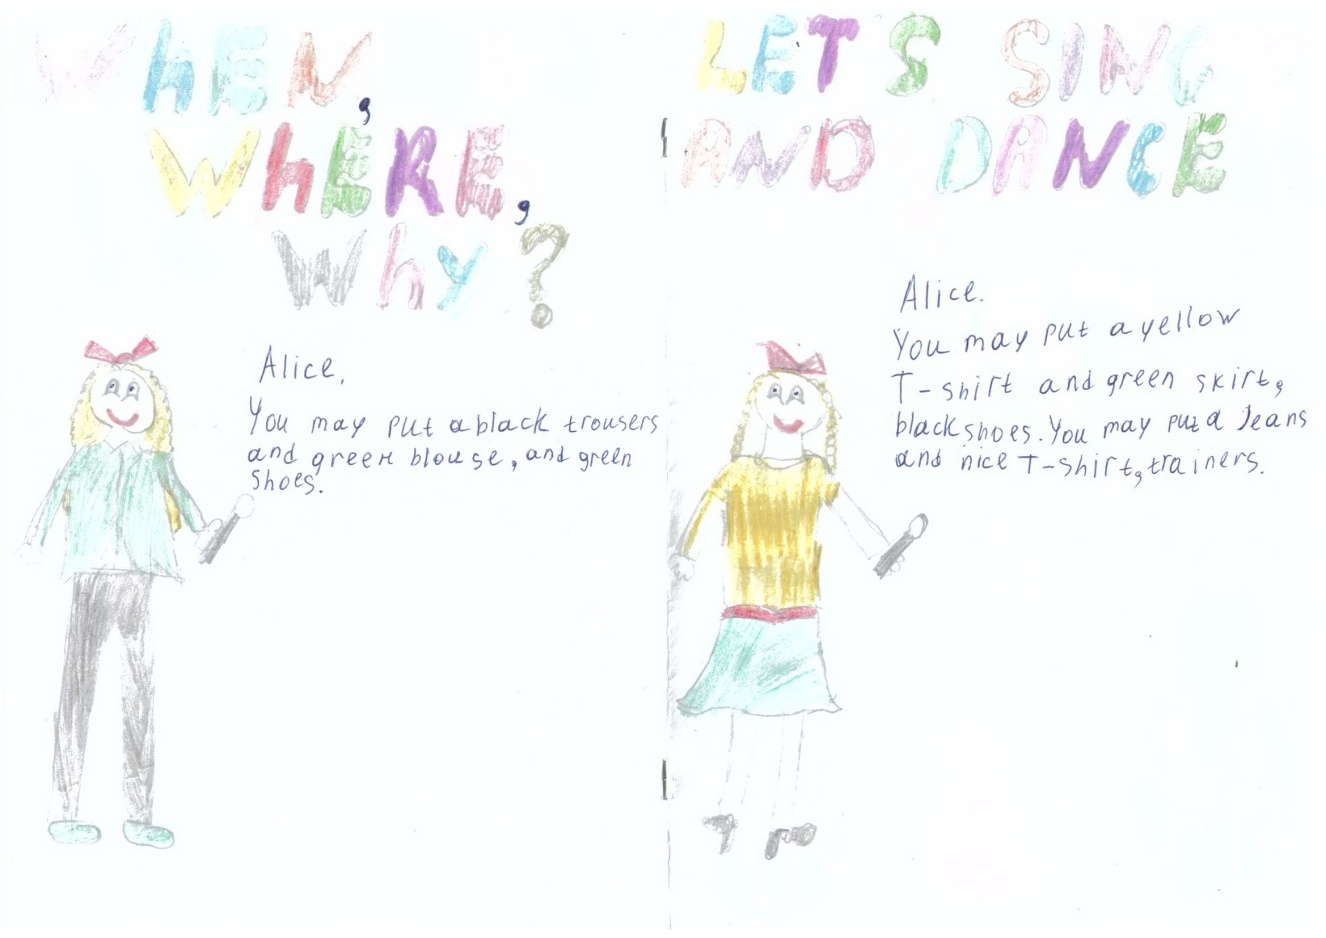 WhEN,
WhERE,
Why?
Alice,
You may put a black trousers
and green blouse, and green
shoes.
LET'S SING
AND DANCE
Alice.
You may put a yellow
T-shirt and green skirt,
black shoes. You may put a Jeans
and nice T-shirt, trainers.